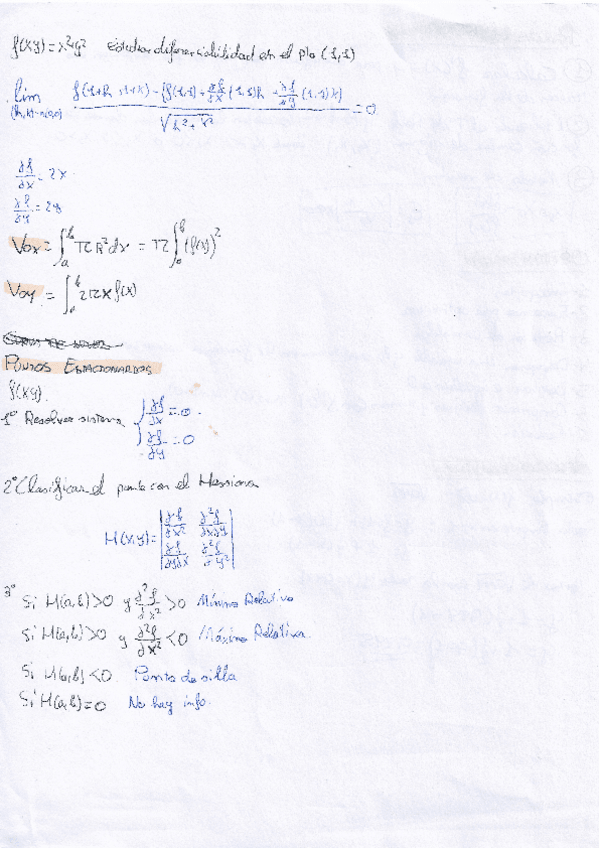 f(x,y) = x²+y² Estudiar diferenciabilidad en el pto (1,1)
lim (h,k)→(0,0) f(1+h, 1+k) - [f(1,1) + ∂f/∂x (1,1)h + ∂f/∂y (1,1)k] / √h²+k² = 0
∂f/∂x = 2x
∂f/∂y = 2y
Vox = ∫ₐᵇ πR²dx = π ∫ₐᵇ (f(x))²
Voy = ∫ₐᵇ 2πx f(x)
PUNTOS ESTACIONARIOS
f(x,y)
1º Resolver sistema { ∂f/∂x = 0
∂f/∂y = 0
2º Clasificar el punto con el Hessiano
H(x,y) = | ∂²f/∂x² ∂²f/∂x∂y |
| ∂f/∂y∂x ∂²f/∂y² |
3º Si H(a,b) > 0 y ∂²f/∂x² > 0 Mínimo Relativo
Si H(a,b) > 0 y ∂²f/∂x² < 0 Máximo Relativo.
Si H(a,b) < 0. Punto de silla
Si H(a,b) = 0 No hay info.